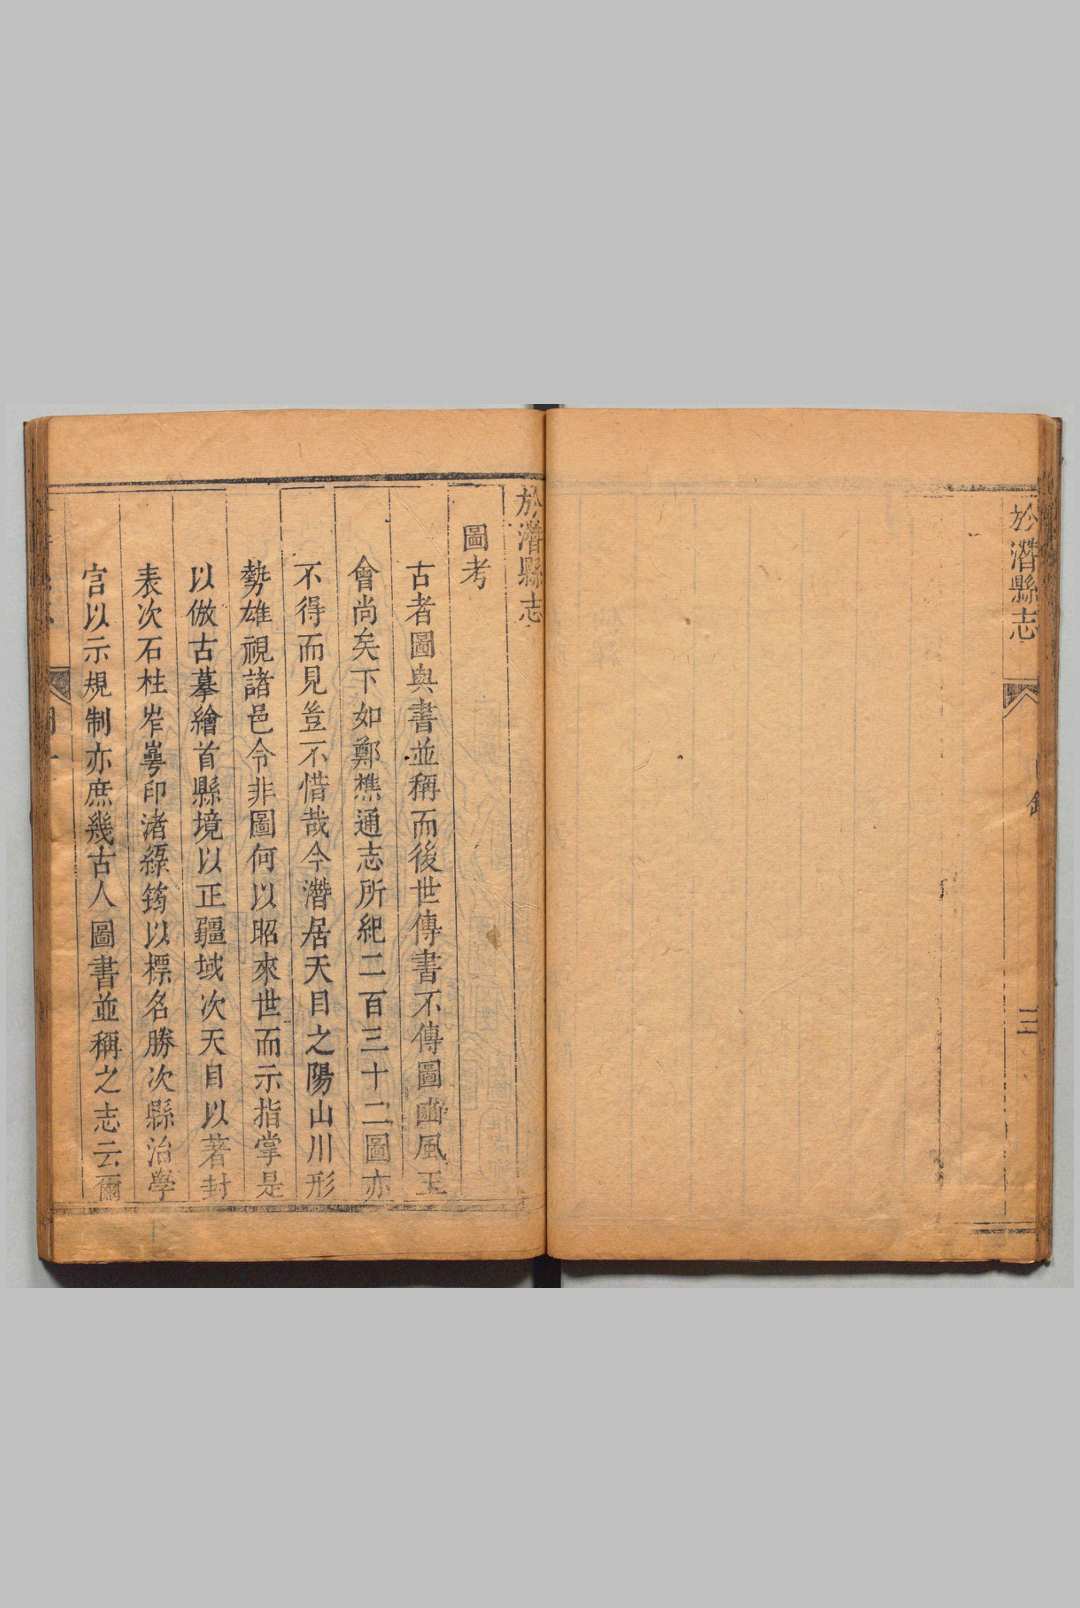 於潛縣志
三
於潛縣志
圖考
古者圖與書並稱而後世傳書不傳圖豳風王
會尚矣下如鄭樵通志所紀二百三十二圖亦
不得而見豈不惜哉今潛居天目之陽山川形
勢雄視諸邑令非圖何以昭來世而示指掌是
以倣古摹繪首縣境以正疆域次天目以著封
表次石柱岝崿印渚綠筠以標名勝次縣治學
宮以示規制亦庶幾古人圖書並稱之志云爾